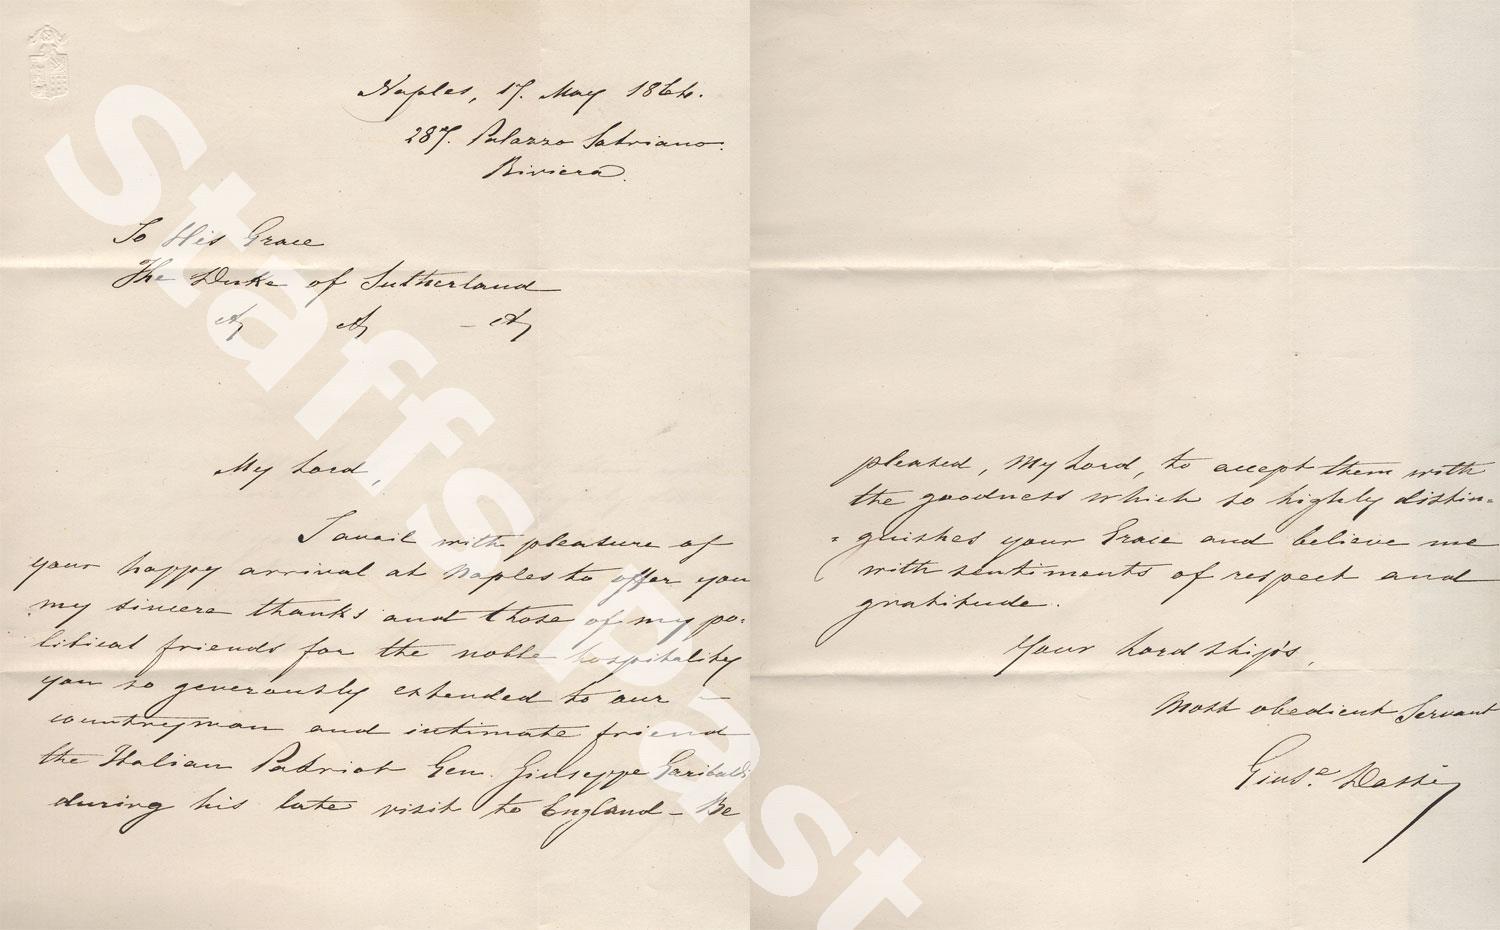 Naples, 17. May 1864.
287. Palazzo Satriano.
Riviera.
To His Grace
The Duke of Sutherland
My Lord,
I avail with pleasure of
your happy arrival at Naples to offer you
my sincere thanks and those of my po-
litical friends for the noble hospitality
you so generously extended to our –
countryman and intimate friend
the Italian Patriot Gen. Giuseppe Garibaldi
during his late visit to England – Be
pleased, My Lord, to accept them with
the goodness which so highly distin=
= guishes your Grace and believe me
with sentiments of respect and
gratitude.
Your Lordship's,
Most obedient Servant
Gius.e
Staffs Past